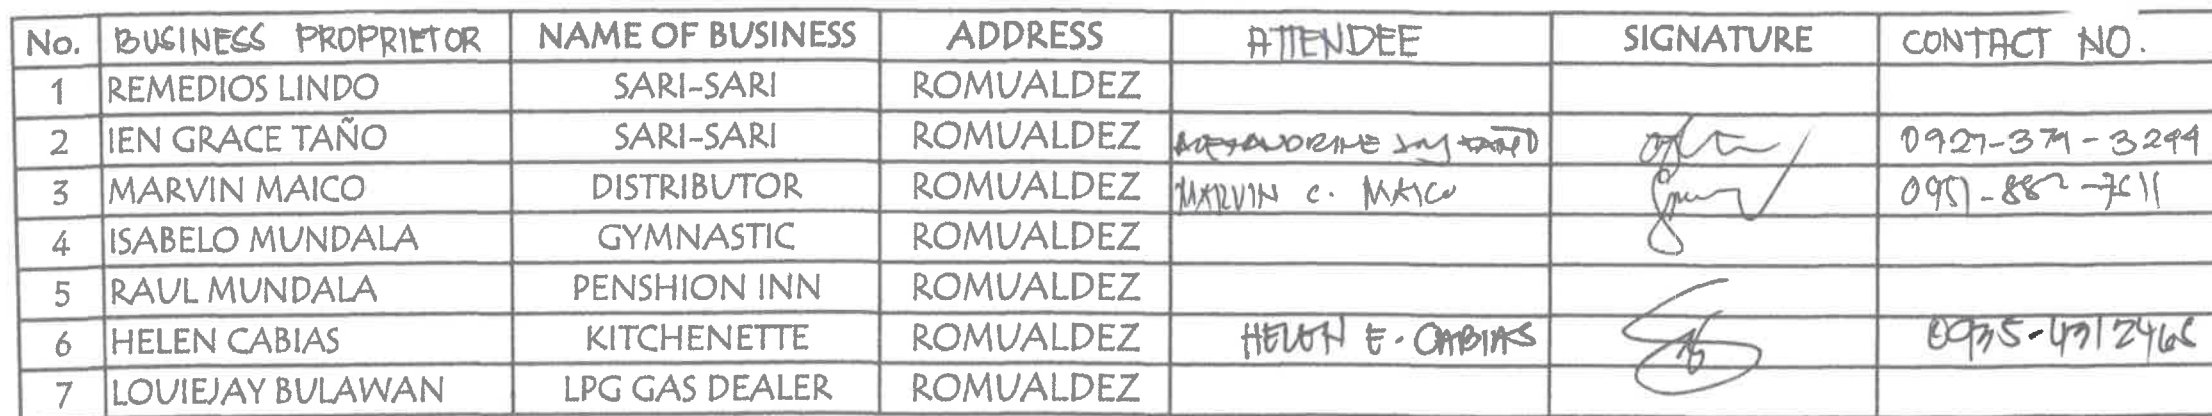 No. BUSINESS PROPRIETOR NAME OF BUSINESS ADDRESS ATTENDEE SIGNATURE CONTACT NO.
1 REMEDIOS LINDO SARI-SARI ROMUALDEZ
2 IEN GRACE TAÑO SARI-SARI ROMUALDEZ
3 MARVIN MAICO DISTRIBUTOR ROMUALDEZ MARVIN C. MAICO
4 ISABELO MUNDALA GYMNASTIC ROMUALDEZ
5 RAUL MUNDALA PENSHION INN ROMUALDEZ
6 HELEN CABIAS KITCHENETTE ROMUALDEZ HELEN E. CABIAS
7 LOUIEJAY BULAWAN LPG GAS DEALER ROMUALDEZ